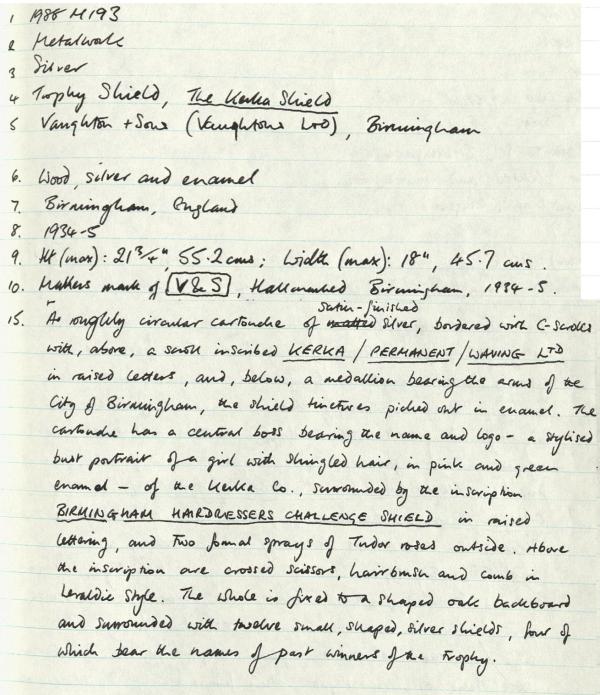 1 1988 M193
2 Metalwork
3 Silver
4 Trophy Shield, The Kerka Shield
5 Vaughton + Sons (Vaughtons Ltd), Birmingham
6. Wood, silver and enamel
7. Birmingham, England
8. 1934-5
9. Ht (max): 21 3/4", 55.2 cms; Width (max): 18", 45.7 cms.
10. Makers mark of V & S, Hallmarked Birmingham, 1934-5.
satin-finished
15. A roughly circular cartouche of matted silver, bordered with C-scrolls
with, above, a scroll inscribed KERKA / PERMANENT / WAVING LTD
in raised letters, and, below, a medallion bearing the arms of the
City of Birmingham, the shield tinctures picked out in enamel. The
cartouche has a central boss bearing the name and logo - a stylised
bust portrait of a girl with shingled hair, in pink and green
enamel - of the Kerka Co., surrounded by the inscription
BIRMINGHAM HAIRDRESSERS CHALLENGE SHIELD in raised
lettering, and two formal sprays of Tudor roses outside. Above
the inscription are crossed scissors, hairbrush and comb in
heraldic style. The whole is fixed to a shaped oak backboard
and surrounded with twelve small, shaped, silver shields, four of
which bear the names of past winners of the Trophy.